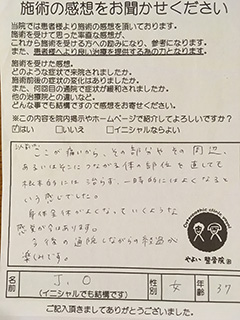 施術の感想をお聞かせください
当院では患者様より施術の感想を頂いております。
施術を受けて思った率直な感想が、
これから施術を受ける方への励みになり、参考になります。
また、患者様より良い治療を提供する為の力となります。
施術を受けた感想。
どのような症状で来院されましたか。
施術前後の症状の変化はありましたか。
また、何回目の通院で症状が緩和されましたか。
他の治療院との違いなど。
どんな事でも結構ですので感想をお寄せください。
※この内容を院内掲示やホームページで紹介してよろしいですか?
☑はい □いいえ □イニシャルならよい
以前はここが痛いから、その部位やその周辺、
あるいはそこにつながる体の部位を直しても
根本的には治らず、一時的にはよくなると
いう感じでした。
身体全体がよくなっていくような
感覚があります。
今後の通院しながらの経過が
楽しみです。
やよい整骨院
名前 J.O 性別 女 年齢 37
(イニシャルでも結構です)
ご記入頂きましてありがとうございました。